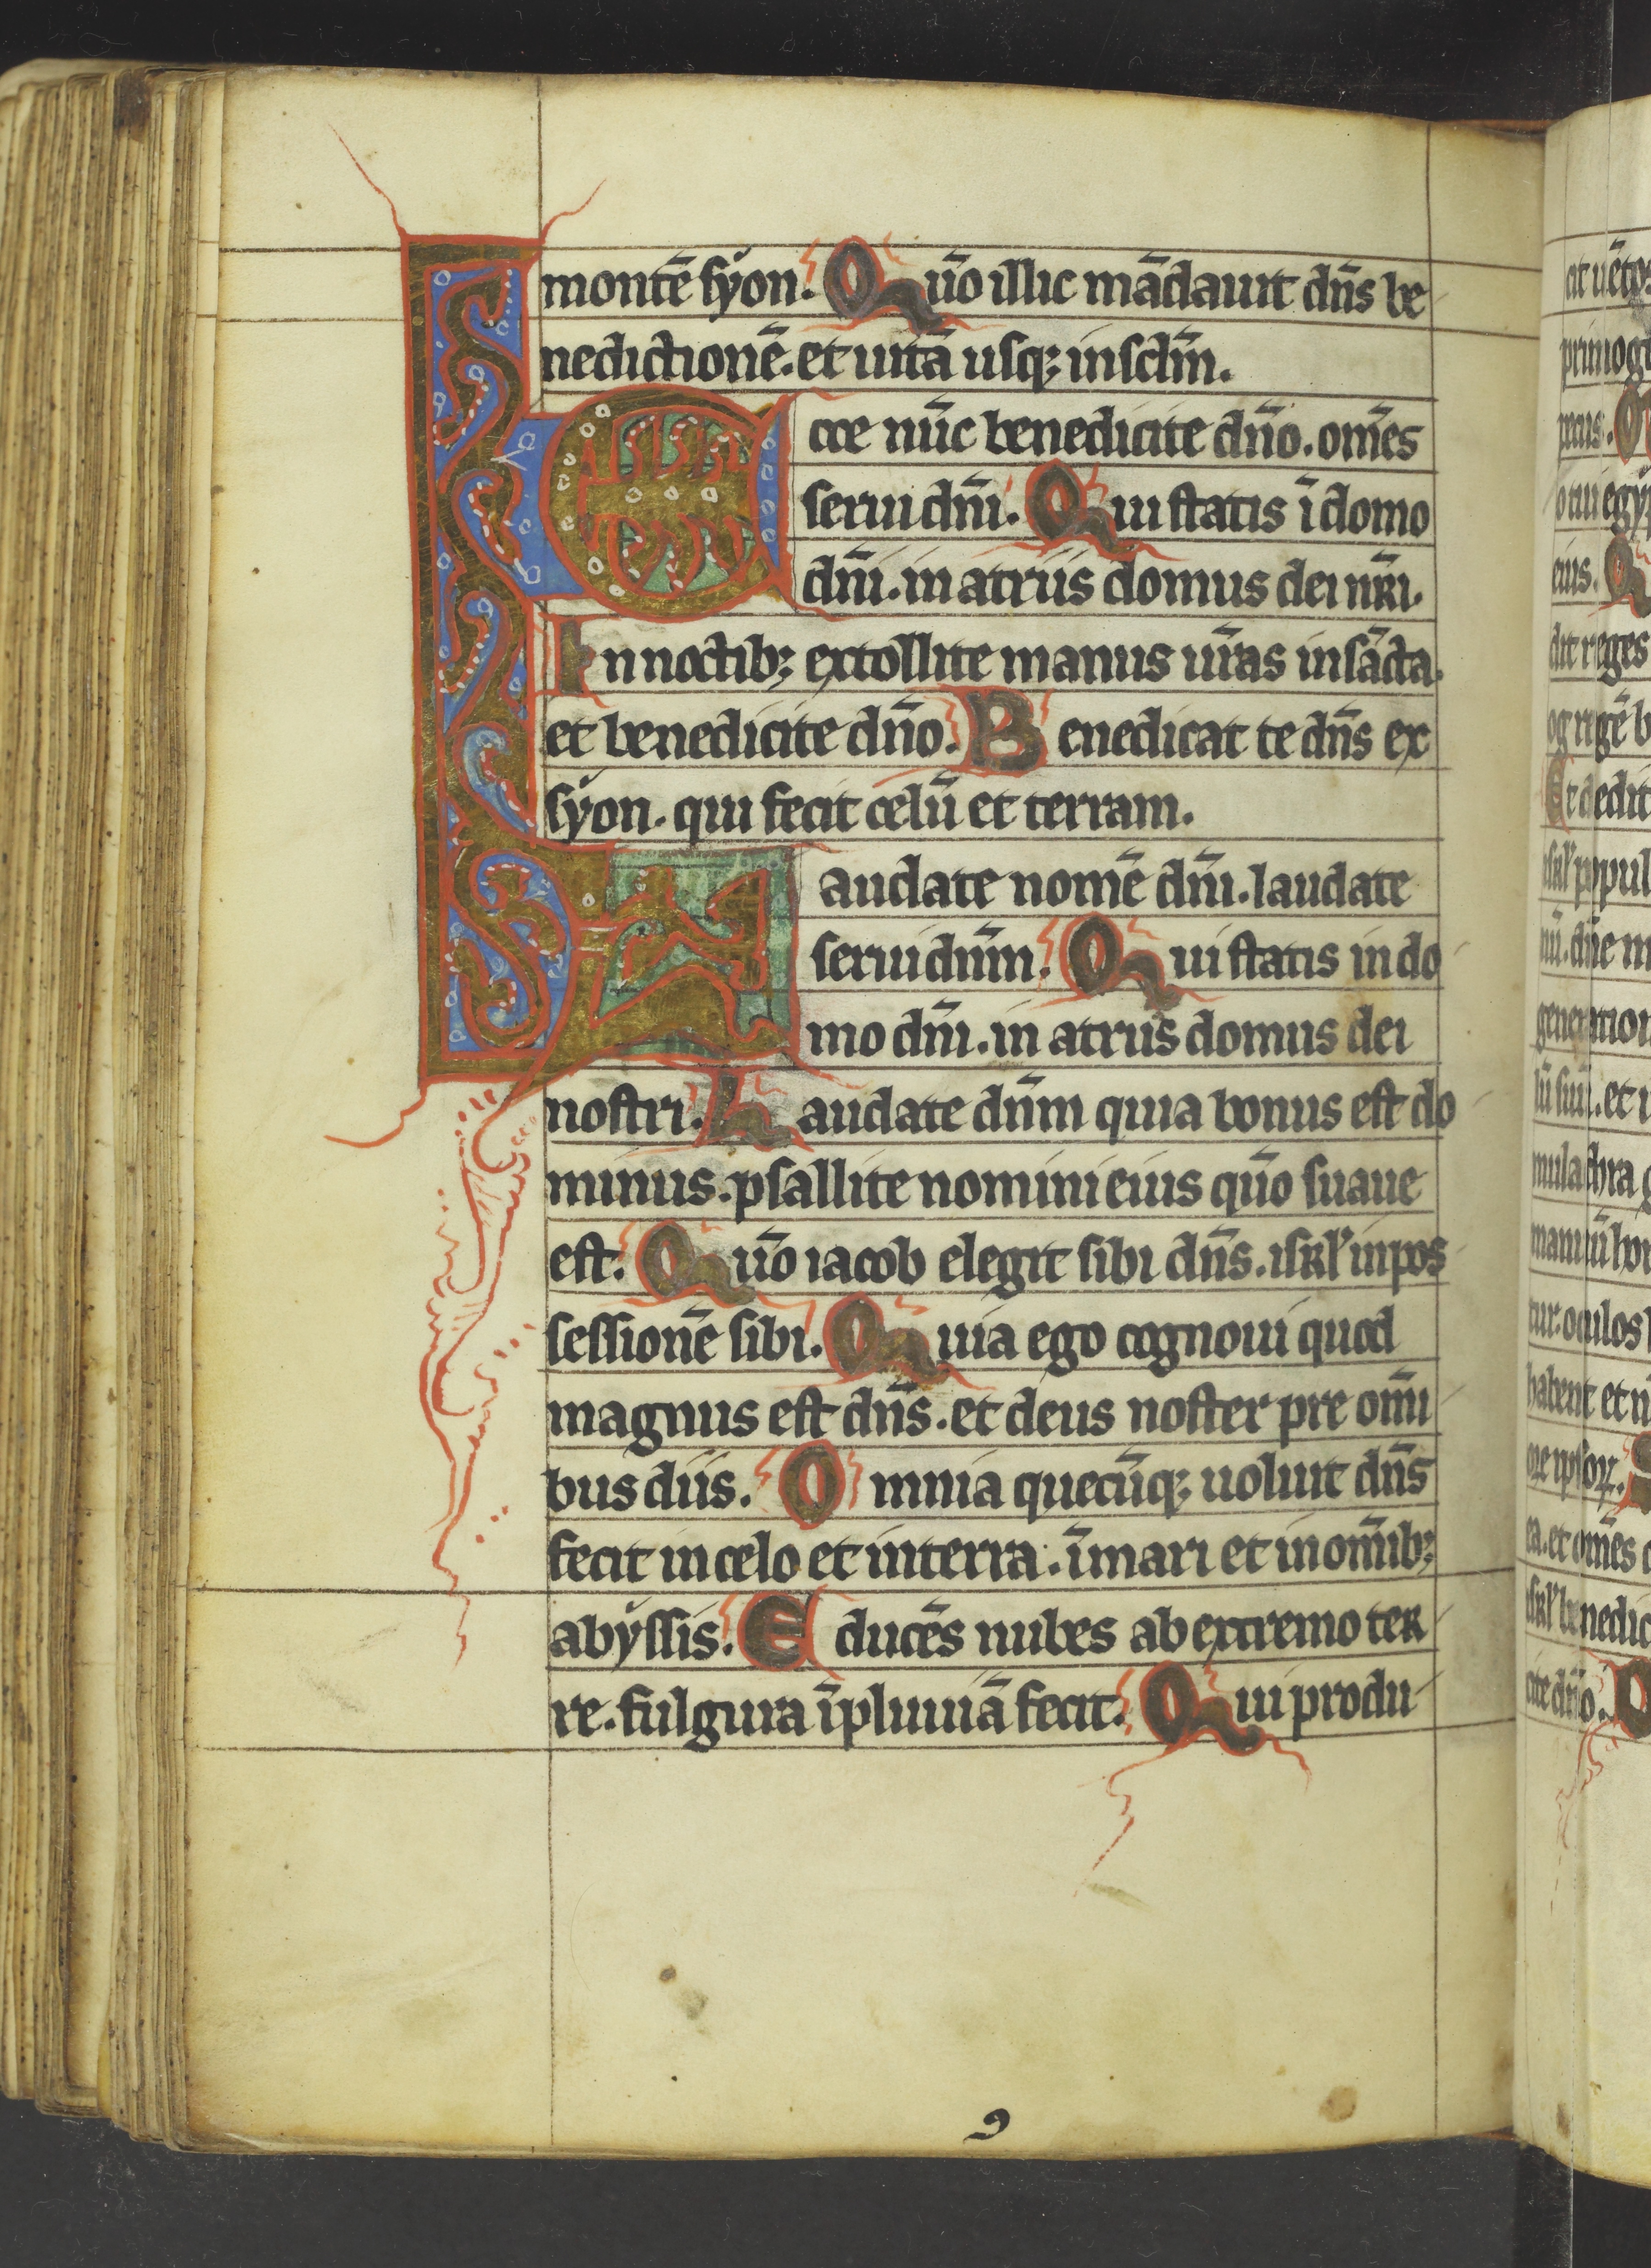 montē syon. Quō illic mādauit dn̄s be
nedictionē. et uitā usq; in sclm̄.
Ecce nūc benedicite dn̄o. om̄es
serui dn̄i. Qui statis ī domo
dn̄i. in atriis domus dei nr̄i.
In noctib; extollite manus ur̄as in sācta.
et benedicite dn̄o. Benedicat te dn̄s ex
syon. qui fecit celū et terram.
Laudate nomē dn̄i. laudate
serui dnm̄. Qui statis in do
mo dn̄i. in atriis domus dei
nostri. Laudate dn̄m quia bonus est do
minus. psallite nomini eius qūo suaue
est. Quō iacob elegit sibi dn̄s. isrl' in pos
sessionē sibi. Quia ego cognoui quod
magnus est dn̄s. et deus noster pre om̄i
bus diis. Omnia quecūq; uoluit dn̄s
fecit in celo et in terra. ī mari et in om̄ib;
abyssis. Educēs nubes ab extremo ter
re. fulgura ī pluuiā fecit. Qui produ
9
primog
eius.
dit reges
og regē b
Et dedit
isrl' popul